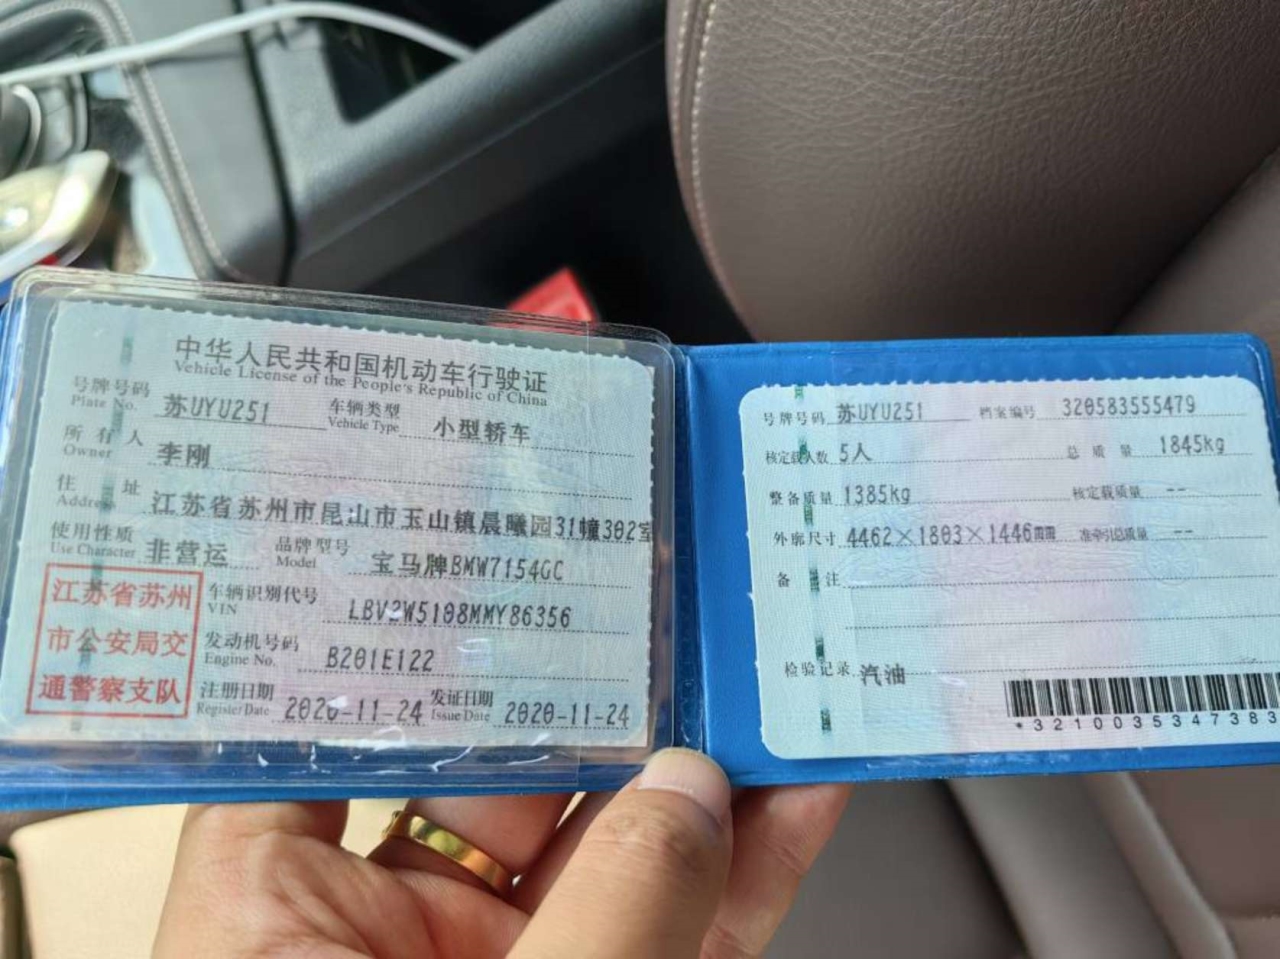 中华人民共和国机动车行驶证
Vehicle License of the People's Republic of China
号牌号码 苏UYU251 车辆类型 小型轿车
Plate No. Vehicle Type
所有人 李刚
Owner
住址 江苏省苏州市昆山市玉山镇晨曦园31幢302室
Address
使用性质 非营运 品牌型号 宝马牌BMW7154GC
Use Character Model
江苏省苏州
市公安局交
通警察支队
车辆识别代号 LBV2W5108MMY86356
VIN
发动机号码 B201E122
Engine No.
注册日期 2020-11-24 发证日期 2020-11-24
Register Date Issue Date
号牌号码 苏UYU251 档案编号 320583555479
核定载人数 5人 总质量 1845kg
整备质量 1385kg 核定载质量 --
外廓尺寸 4462×1803×1446mm 准牵引总质量 --
备注
检验记录 汽油
*3210035347383